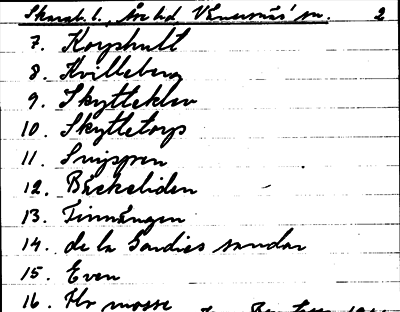 Skarab. l., Åse hd Vänersnäs' sn. 2
7. Korpshult
8. Kvilleberg
9. Skytteklev
10. Skyttetorp
11.
12. Bäckeliden
13. Finnängen
14. de la Gardies sandar
15. Even
16. mosse